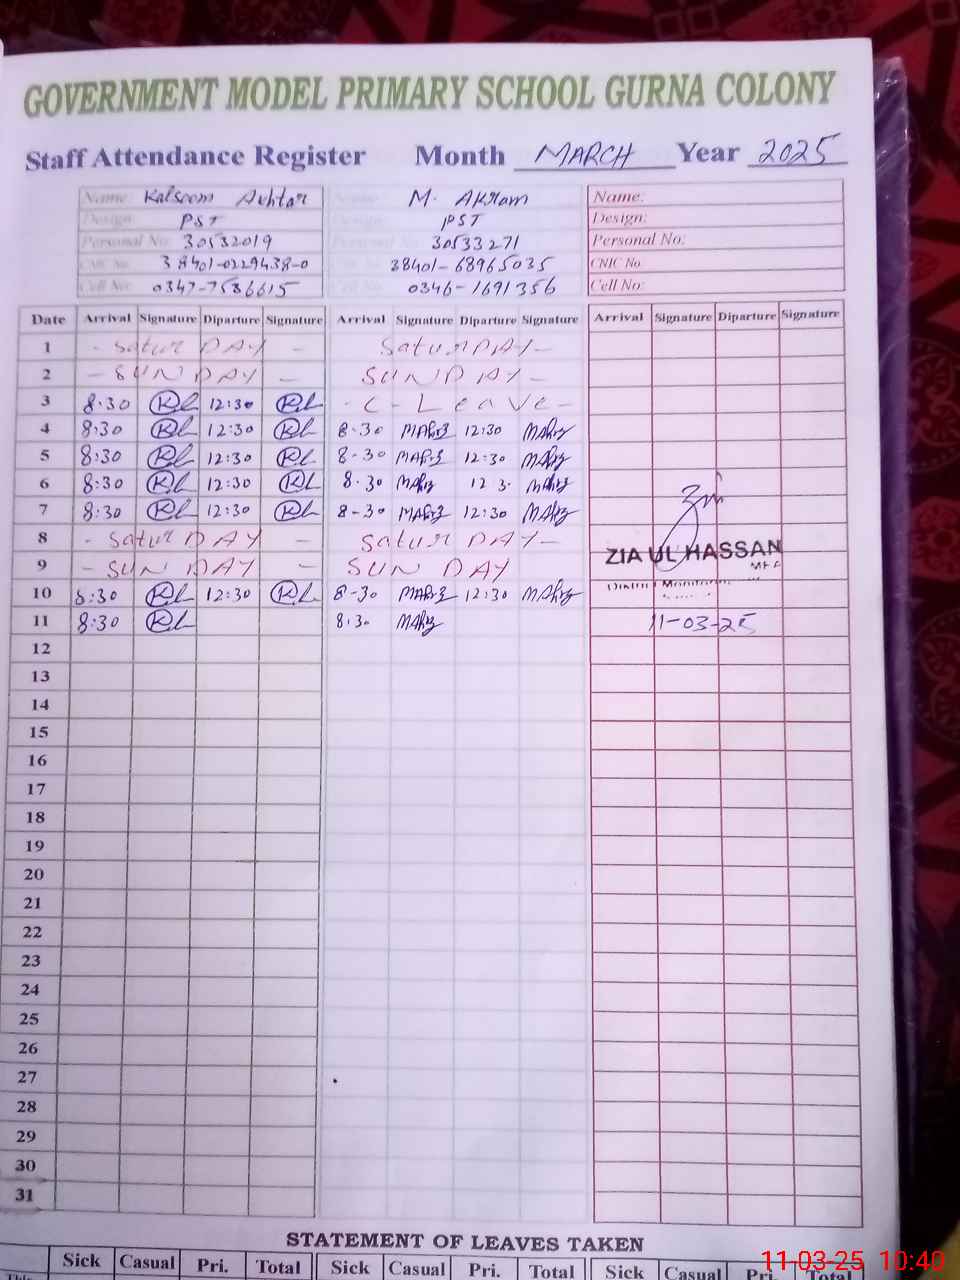 GOVERNMENT MODEL PRIMARY SCHOOL GURNA COLONY
Staff Attendance Register Month MARCH Year 2025
Name: Kalsoom Akhtar Name: M. Akram Name:
Design: PST Design: PST Design:
Personal No: 30532019 Personal No: 30533271 Personal No:
CNIC No. 38401-0229438-0 38401-68965035 CNIC No.
Cell No: 0347-7586615 0346-1691356 Cell No:
Date Arrival Signature Diparture Signature Arrival Signature Diparture Signature Arrival Signature Diparture Signature
1 - Satur DAY - Satur DAY-
2 - SUN DAY - SUN DAY-
3 8:30 12:30 - C - Leave -
4 8:30 12:30 8-30 12:30
5 8:30 12:30 8-30 12:30
6 8:30 12:30 8.30 12 3.
7 8:30 12:30 8-30 12:30
8 - Satur DAY - Satur DAY-
ZIA UL HASSAN
MEA
9 - SUN DAY - SUN DAY
District Monitoring
10 8:30 12:30 8-30 12:30
11 8:30 8.30 11-03-25
12
13
14
15
16
17
18
19
20
21
22
23
24
25
26
27
28
29
30
31
STATEMENT OF LEAVES TAKEN
Sick Casual Pri. Total Sick Casual Pri. Total Sick Casual Pri. Total
This
11-03-25 10:40